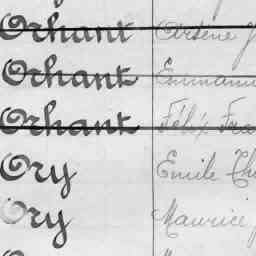 Orhant Arsène J
Orhant Emmanu
Orhant Félix Fra
Ory Emile Th
Ory Maurice